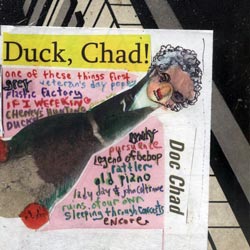 Duck, Chad!
one of these things first
grey veteran's day poppy
plastic factory
IF I WERE KING
CHENEY'S HUNTING
DUCK
pursuance
legend of bebop
rattler
old piano
lady day & john coltrane
ruins of our own
sleeping through concepts
encore
Doc Chad